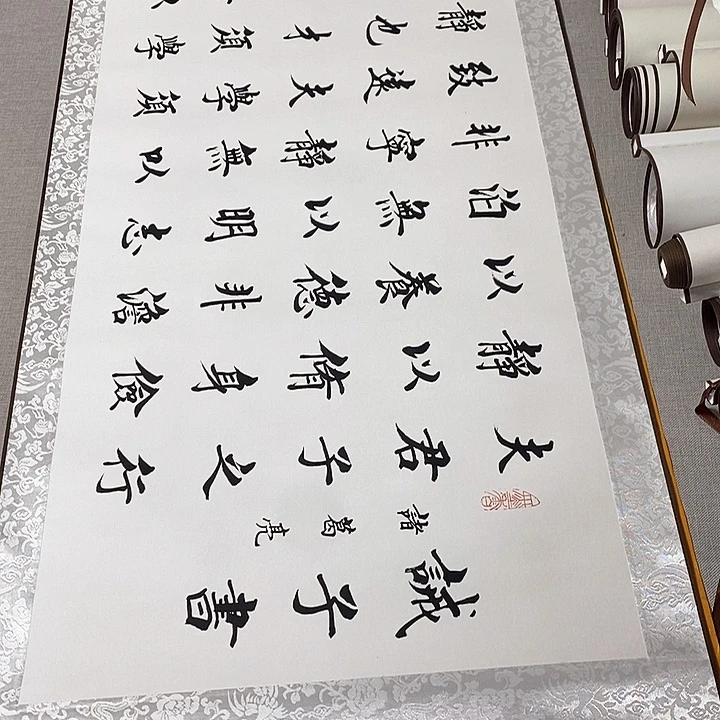 誡子書
諸葛亮
夫君子之行
靜以脩身儉
以養德非澹
泊無以明志
非寧靜無以
致遠夫學須
靜也才須學